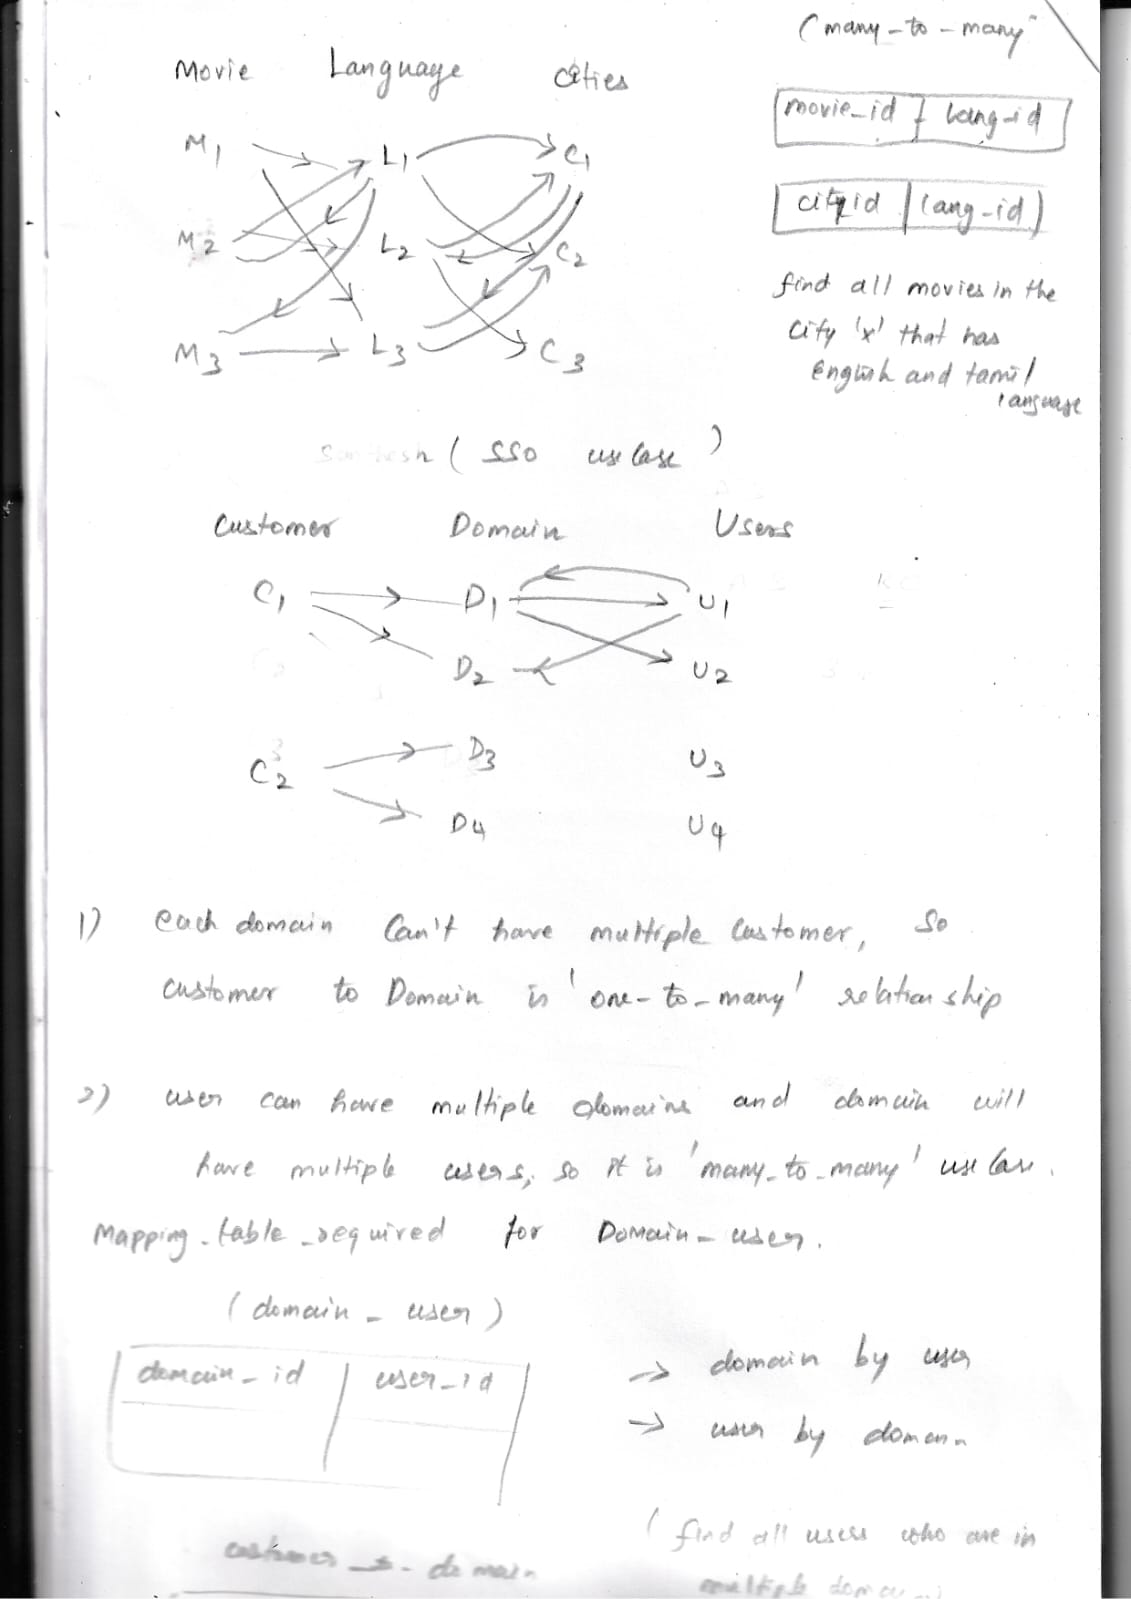 (many-to-many"
Movie Language cities
movie_id lang-id
M1 L1 C1
city id lang-id
M2 L2 C2
find all movies in the
city 'x' that has
English and tamil
language
M3 L3 C3
(SSO use case)
Customer Domain Users
C1 D1 U1
D2 U2
C2 D3 U3
D4 U4
1) each domain can't have multiple customer, so
customer to Domain is 'one-to-many' relationship
2) user can have multiple domains and domain will
have multiple users, so it is 'many-to-many' use case.
Mapping-table-required for Domain-user.
(domain-user)
domain-id user-id
→ domain by user
→ user by domain
(find all users who are in
customer domain
multiple